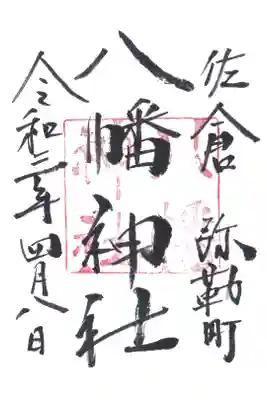 佐倉 弥勒町
八幡神社
令和二年四月八日